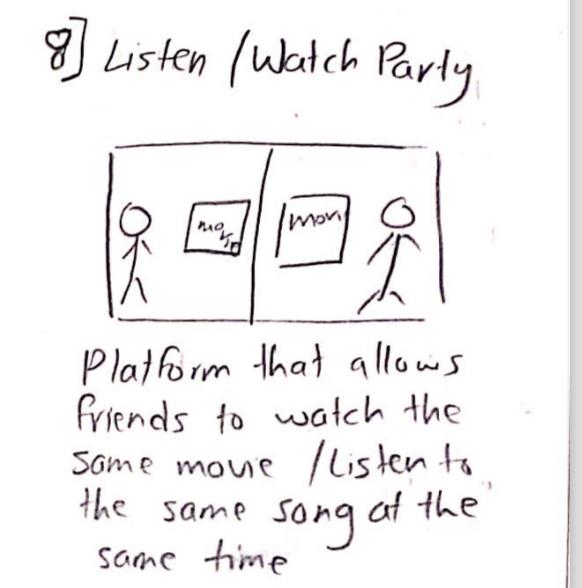 8] Listen / Watch Party
mov
Platform that allows
friends to watch the
same movie / Listen to
the same song at the
same time